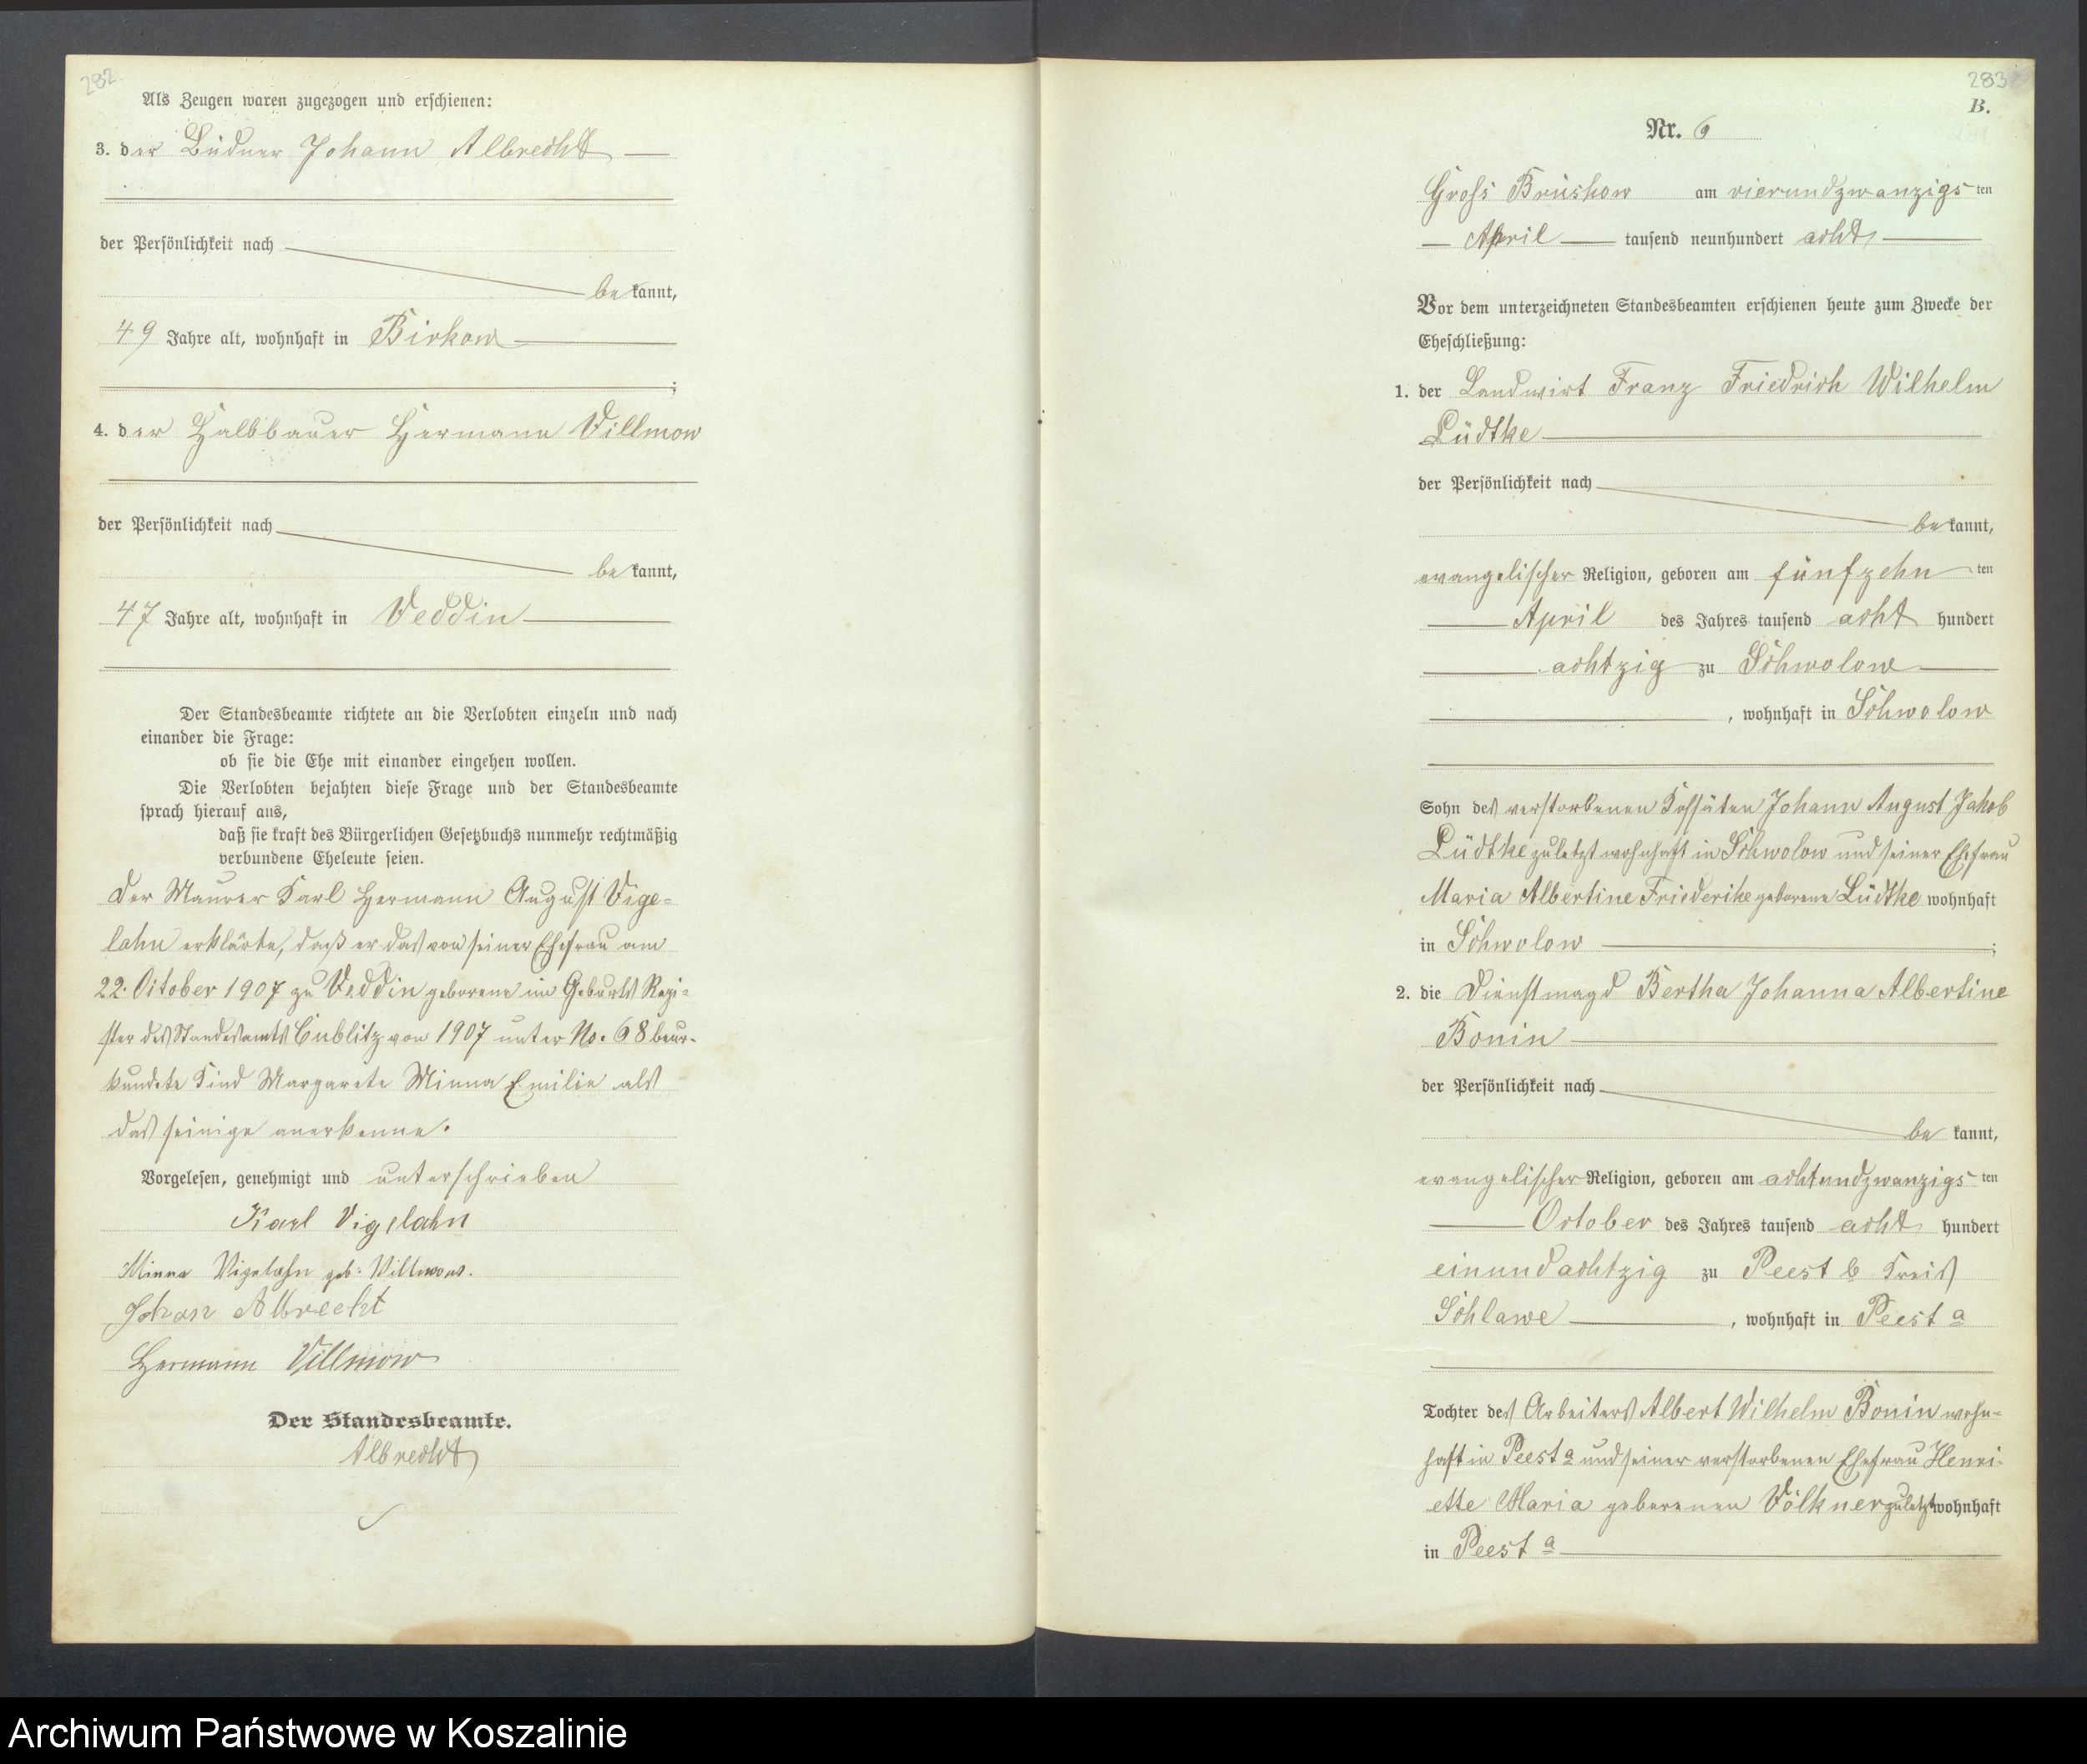 282
Als Zeugen waren zugezogen und erschienen:
3. der Büdner Johann Albrecht
der Persönlichkeit nach
bekannt,
49 Jahre alt, wohnhaft in Birkow
;
4. der Halbbauer Hermann Villmow
der Persönlichkeit nach
bekannt,
47 Jahre alt, wohnhaft in Veddin
Der Standesbeamte richtete an die Verlobten einzeln und nach
einander die Frage:
ob sie die Ehe mit einander eingehen wollen.
Die Verlobten bejahten diese Frage und der Standesbeamte
sprach hierauf aus,
daß sie kraft des Bürgerlichen Gesetzbuchs nunmehr rechtmäßig
verbundene Eheleute seien.
Der Maurer Karl Hermann August Vige=
lahn erklärte, daß er das von seiner Ehefrau am
22. October 1907 zu Veddin geborene im Geburts Regi=
ster des Standesamts Cublitz von 1907 unter No. 68 beur=
kundete Kind Margarete Minna Emilie als
das seinige anerkenne.
Vorgelesen, genehmigt und unterschrieben
Karl Vigelahn
Minna Vigelahn geb. Villmow.
Johan Albrecht
Hermann Villmow
Der Standesbeamte.
Albrecht
283
B.
Nr. 6
Gross Brüskow am vierundzwanzigsten
April tausend neunhundert acht
Vor dem unterzeichneten Standesbeamten erschienen heute zum Zwecke der
Eheschließung:
1. der Landwirt Franz Friedrich Wilhelm
Lüdtke
der Persönlichkeit nach
bekannt,
evangelischer Religion, geboren am fünfzehnten
April des Jahres tausend acht hundert
achtzig zu Schwolow
, wohnhaft in Schwolow
Sohn des verstorbenen Kossäten Johann August Jakob
Lüdtke zuletzt wohnhaft in Schwolow und seiner Ehefrau
Maria Albertine Friederike geborene Lüdtke wohnhaft
in Schwolow ;
2. die Dienstmagd Bertha Johanna Albertine
Bonin
der Persönlichkeit nach
bekannt,
evangelischer Religion, geboren am achtundzwanzigsten
October des Jahres tausend acht hundert
einundachtzig zu Peest b Kreis
Schlawe , wohnhaft in Peest a
Tochter des Arbeiters Albert Wilhelm Bonin wohn=
haft in Peest a und seiner verstorbenen Ehefrau Henri=
ette Maria geborenen Völkner zuletzt wohnhaft
in Peest a
Archiwum Państwowe w Koszalinie